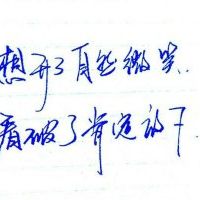 想开了自然微笑.
看破了肯定放下.